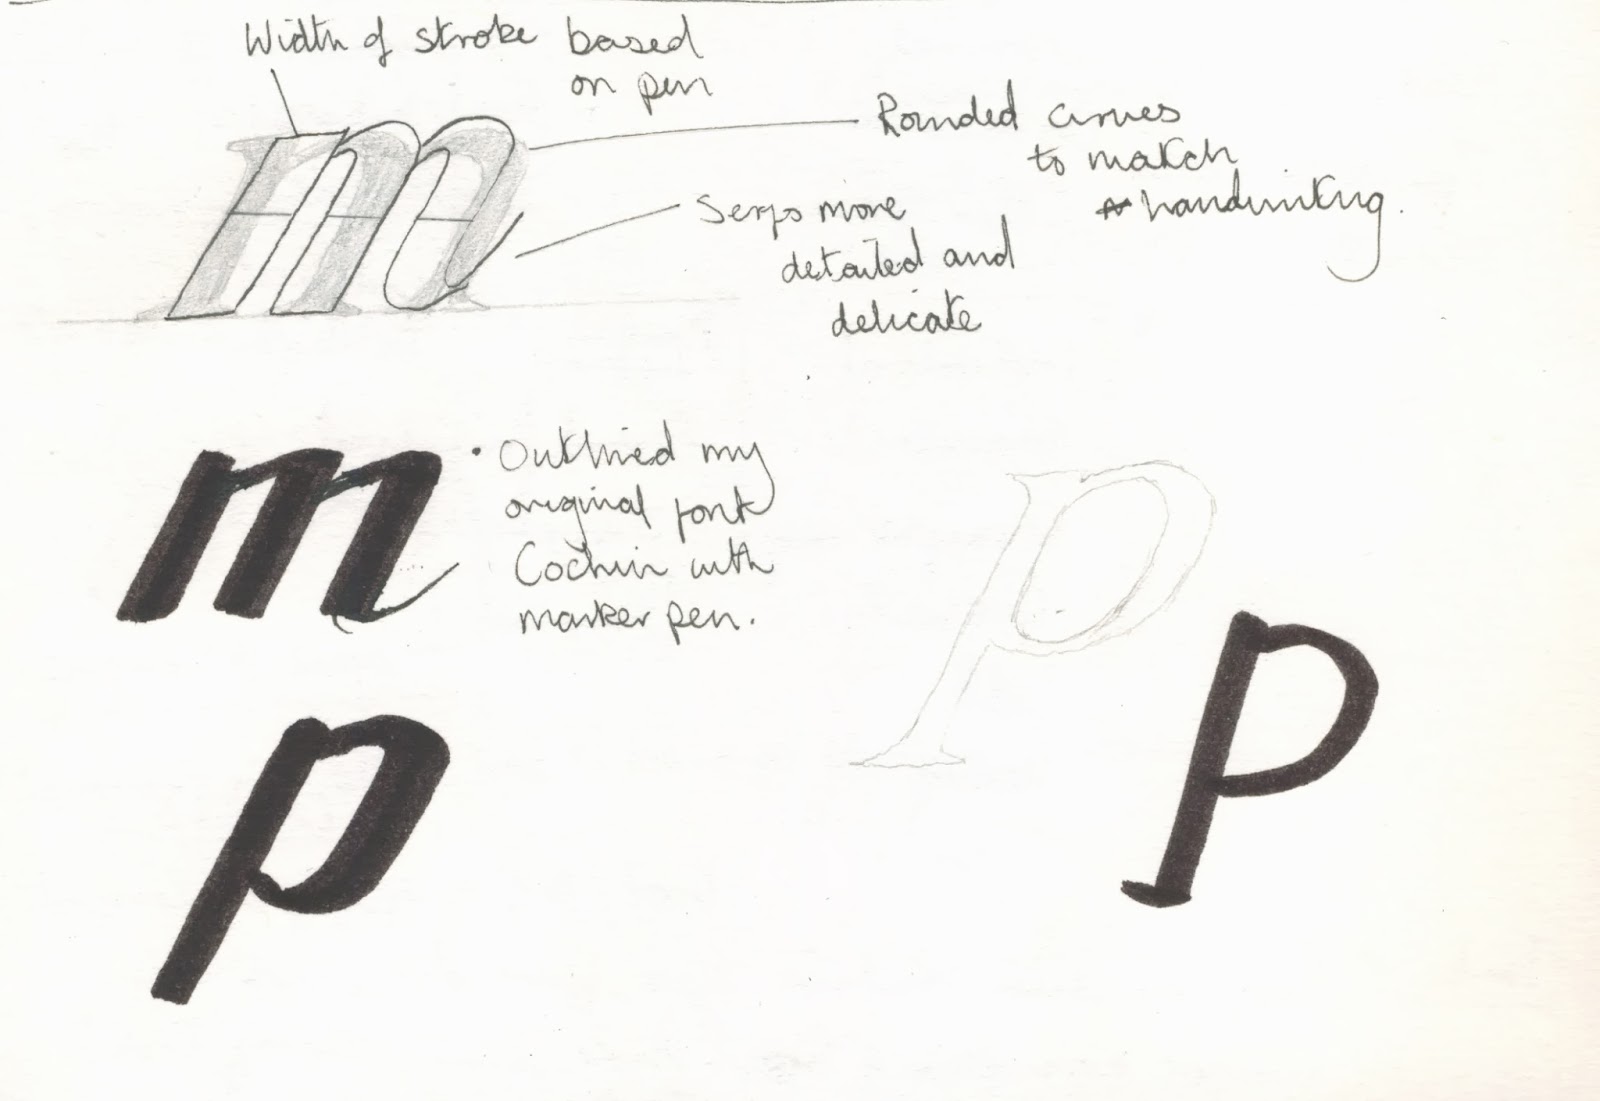 Width of stroke based
on pen
m
Rounded curves
to match
handwriting.
Serifs more
detailed and
delicate
m
• Outlined my
original font
Cochin with
marker pen.
p
p
p